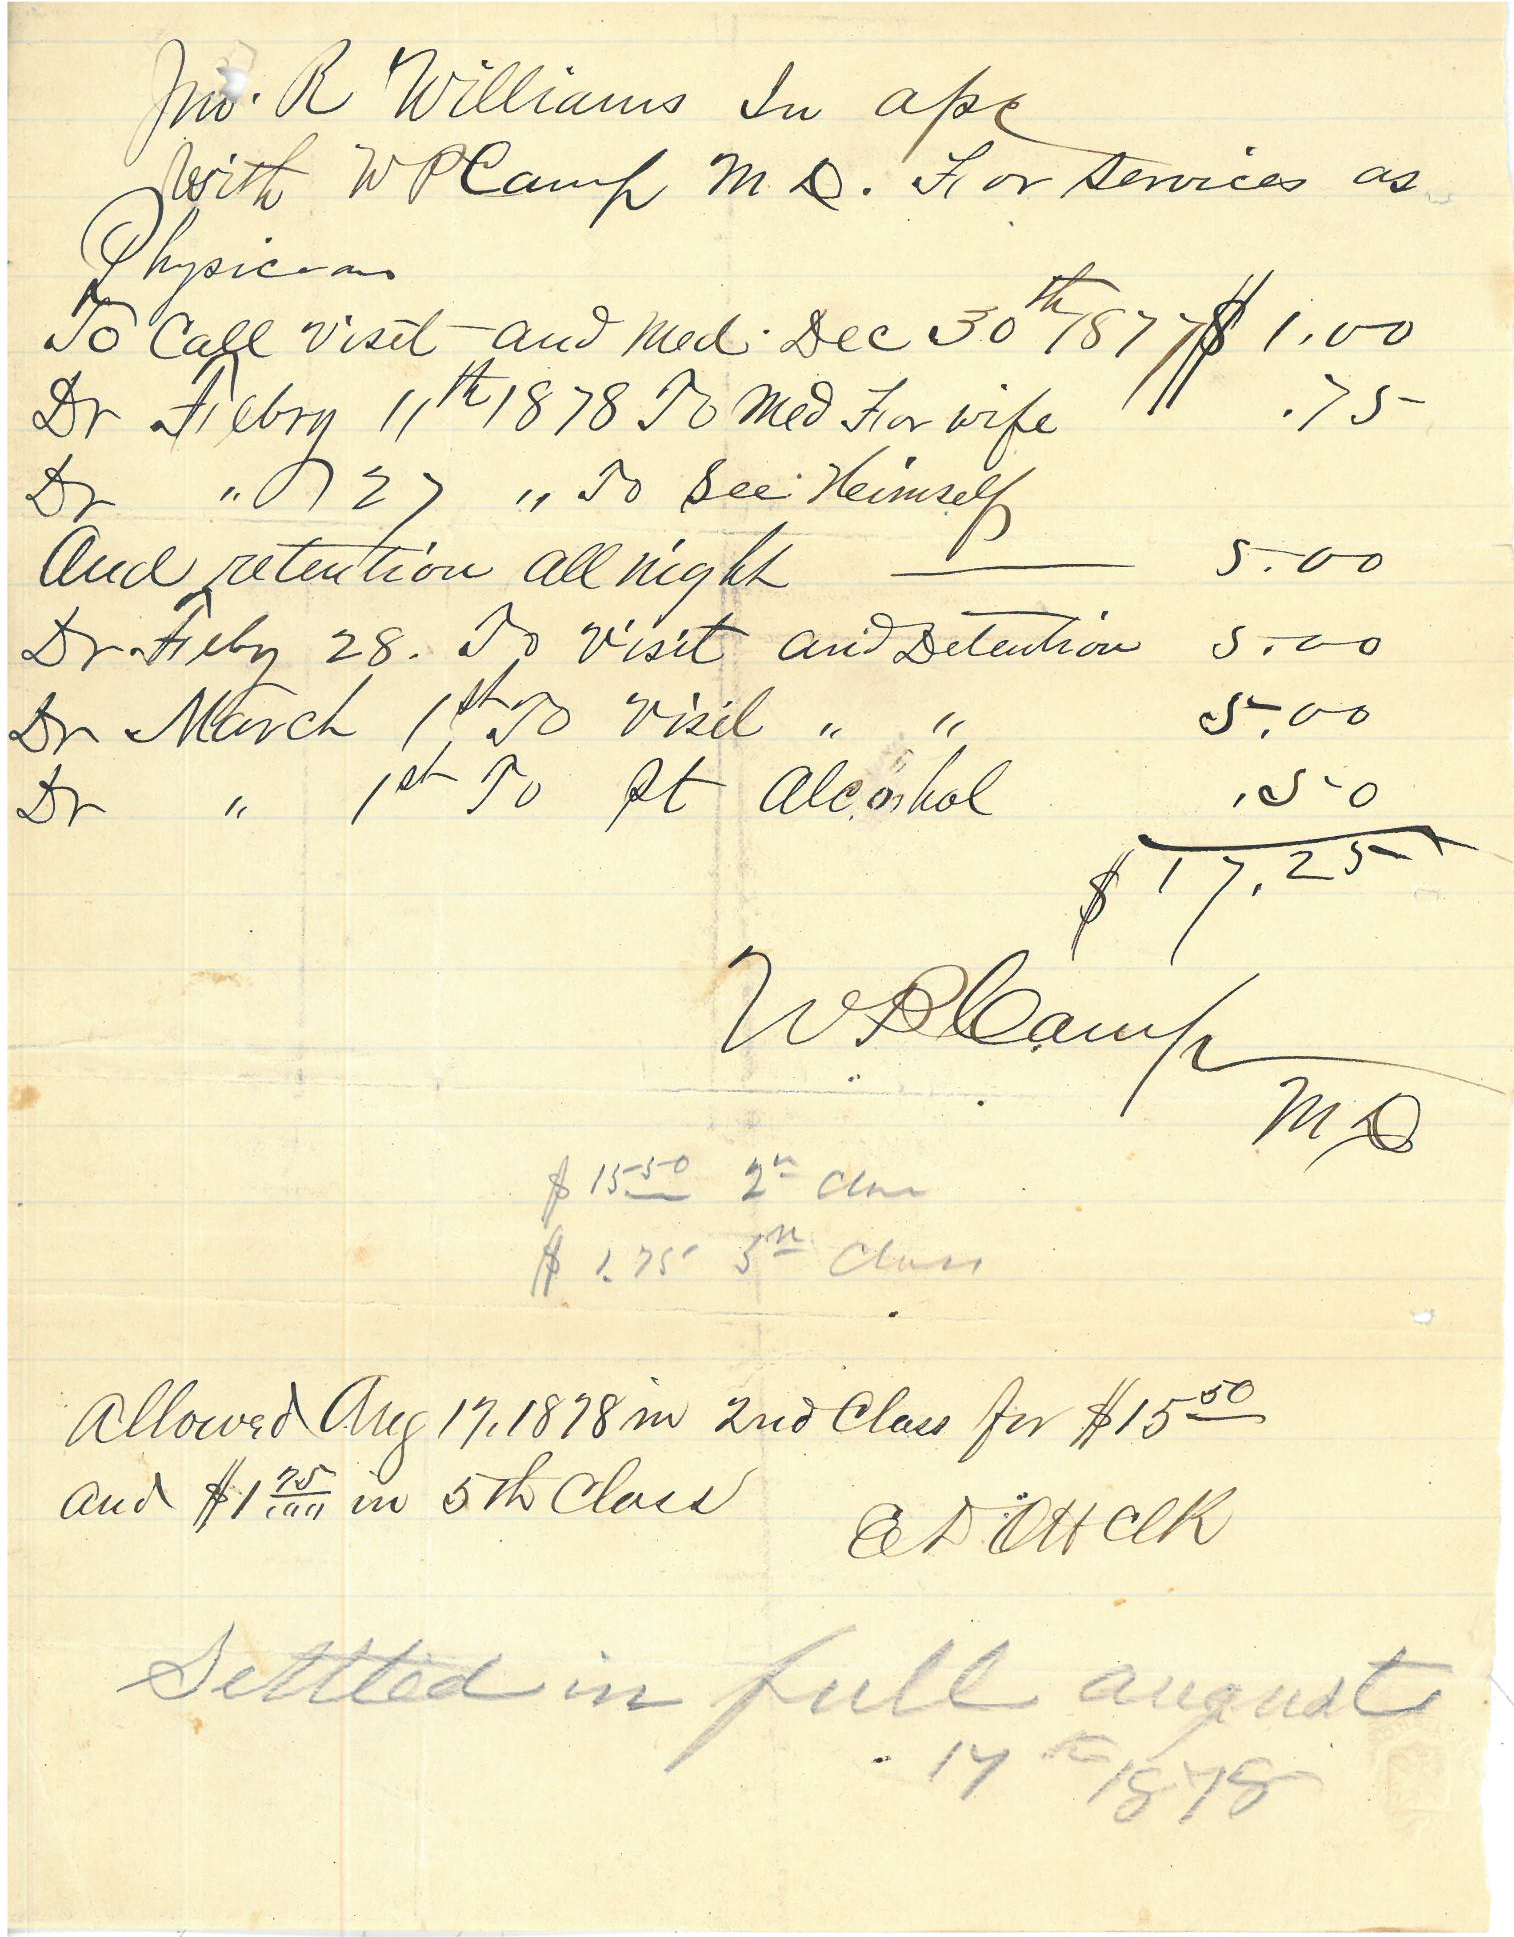 Jno. R Williams In apc
With W P Camp M D. For services as
Physician
To Call Visit and Med. Dec 30th 1877 $ 1.00
Dr Febry 11th 1878 To Med For wife .75
Dr " 27 " To See Heimself
And retention all night 5.00
Dr Feby 28. To Visit and Detention 5.00
Dr March 1st To Visit " " 5.00
Dr " 1st To Pt Alcohol .50
$ 17.25
W P Camp
M D
$ 15 50 2n Class
$ 1.75 5th Class
Allowed Aug 17, 1878 in 2nd Class for $15 50
and $1 75/100 in 5th Class
E D Ott Clk
Settled in full august
17th 1878